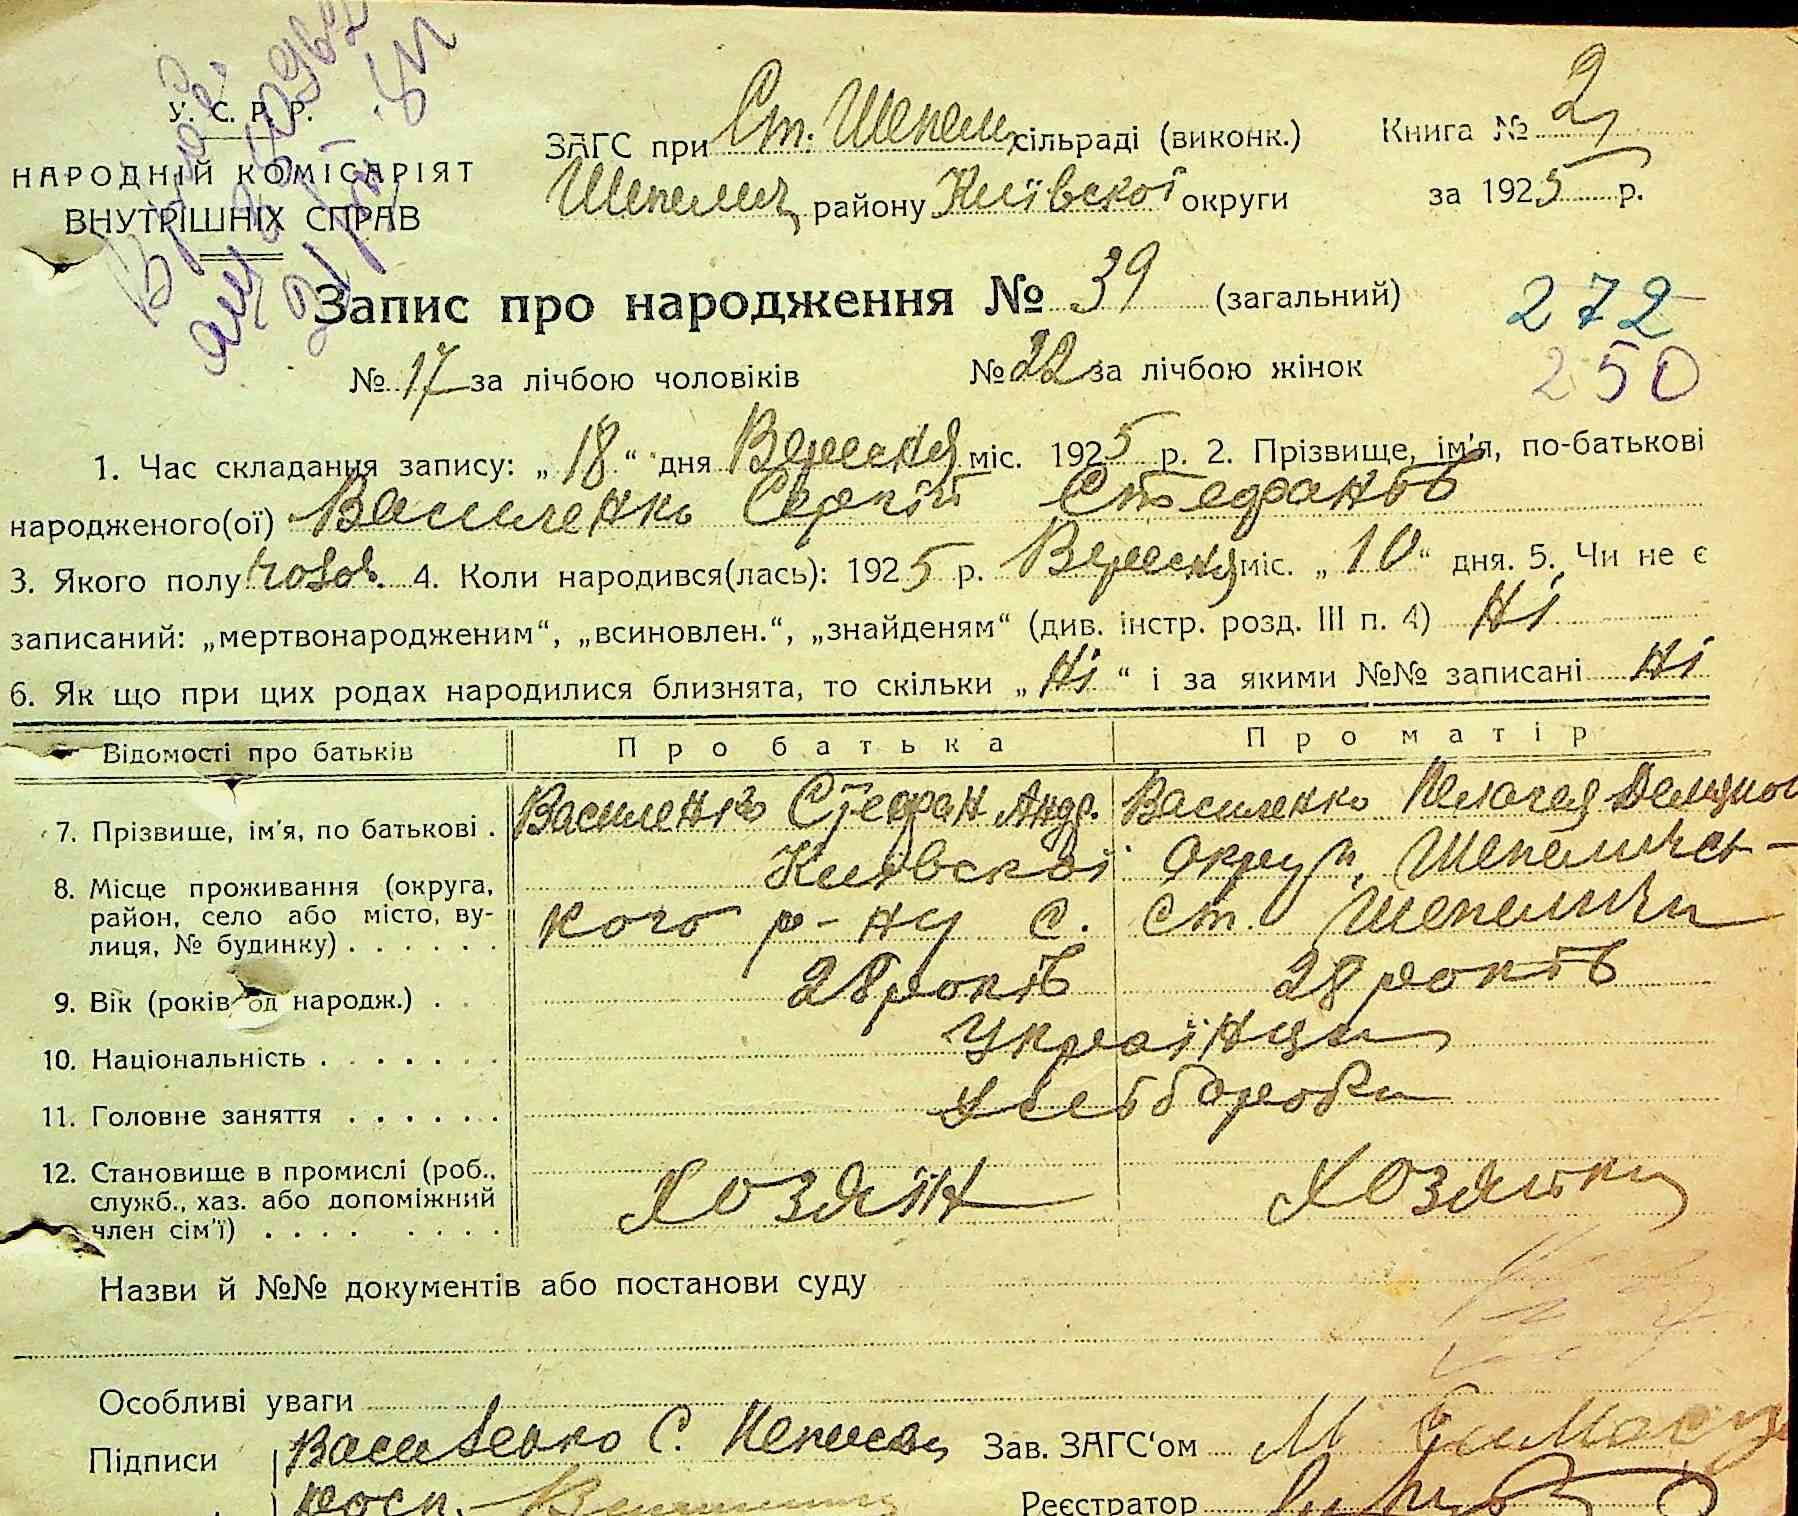 У. С. Р. Р.
НАРОДНІЙ КОМІСАРІЯТ
ВНУТРІШНІХ СПРАВ
ЗАГС при Ст. Шепел. сільраді (виконк.)
Шепелич району Київскої округи
Книга № 2
за 1925 р.
Запис про народження № 39 (загальний)
272
№ 17 за лічбою чоловіків № 22 за лічбою жінок
250
1. Час складання запису: „18“ дня Вересня міс. 1925 р. 2. Прізвище, ім'я, по-батькові
народженого(ої) Василенко Сергій Стефанов
3. Якого полу чолов. 4. Коли народився(лась): 1925 р. Вересня міс. „10“ дня. 5. Чи не є
записаний: „мертвонародженим“, „всиновлен.“, „знайденям“ (див. інстр. розд. III п. 4) Ні
6. Як що при цих родах народилися близнята, то скільки „Ні“ і за якими №№ записані Ні
Відомості про батьків Про батька Про матір
7. Прізвище, ім'я, по батькові . Василенко Стефан Андр. Василенко Пелагея
8. Місце проживання (округа, Київскої Округи, Шепеличсь-
район, село або місто, ву-
лиця, № будинку) . . . . . . кого р-ну с. Ст. Шепеличи
9. Вік (років од народж.) . . 28 років 28 років
10. Національність . . . . . . . Українци
11. Головне заняття . . . . . . Хлебороби
12. Становище в промислі (роб.,
служб., хаз. або допоміжний Хозяїн Хозяйка
член сім'ї) . . . . . . . .
Назви й №№ документів або постанови суду
Особливі уваги
Підписи Василенко С. Зав. ЗАГС'ом М
Реєстратор